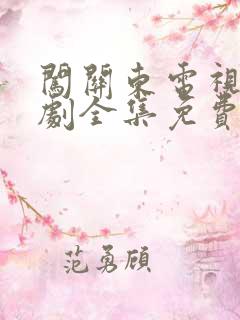 闖關東電視
劇全集免費
范勇頋